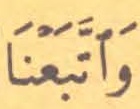 وَٱتَّبَعْنَا